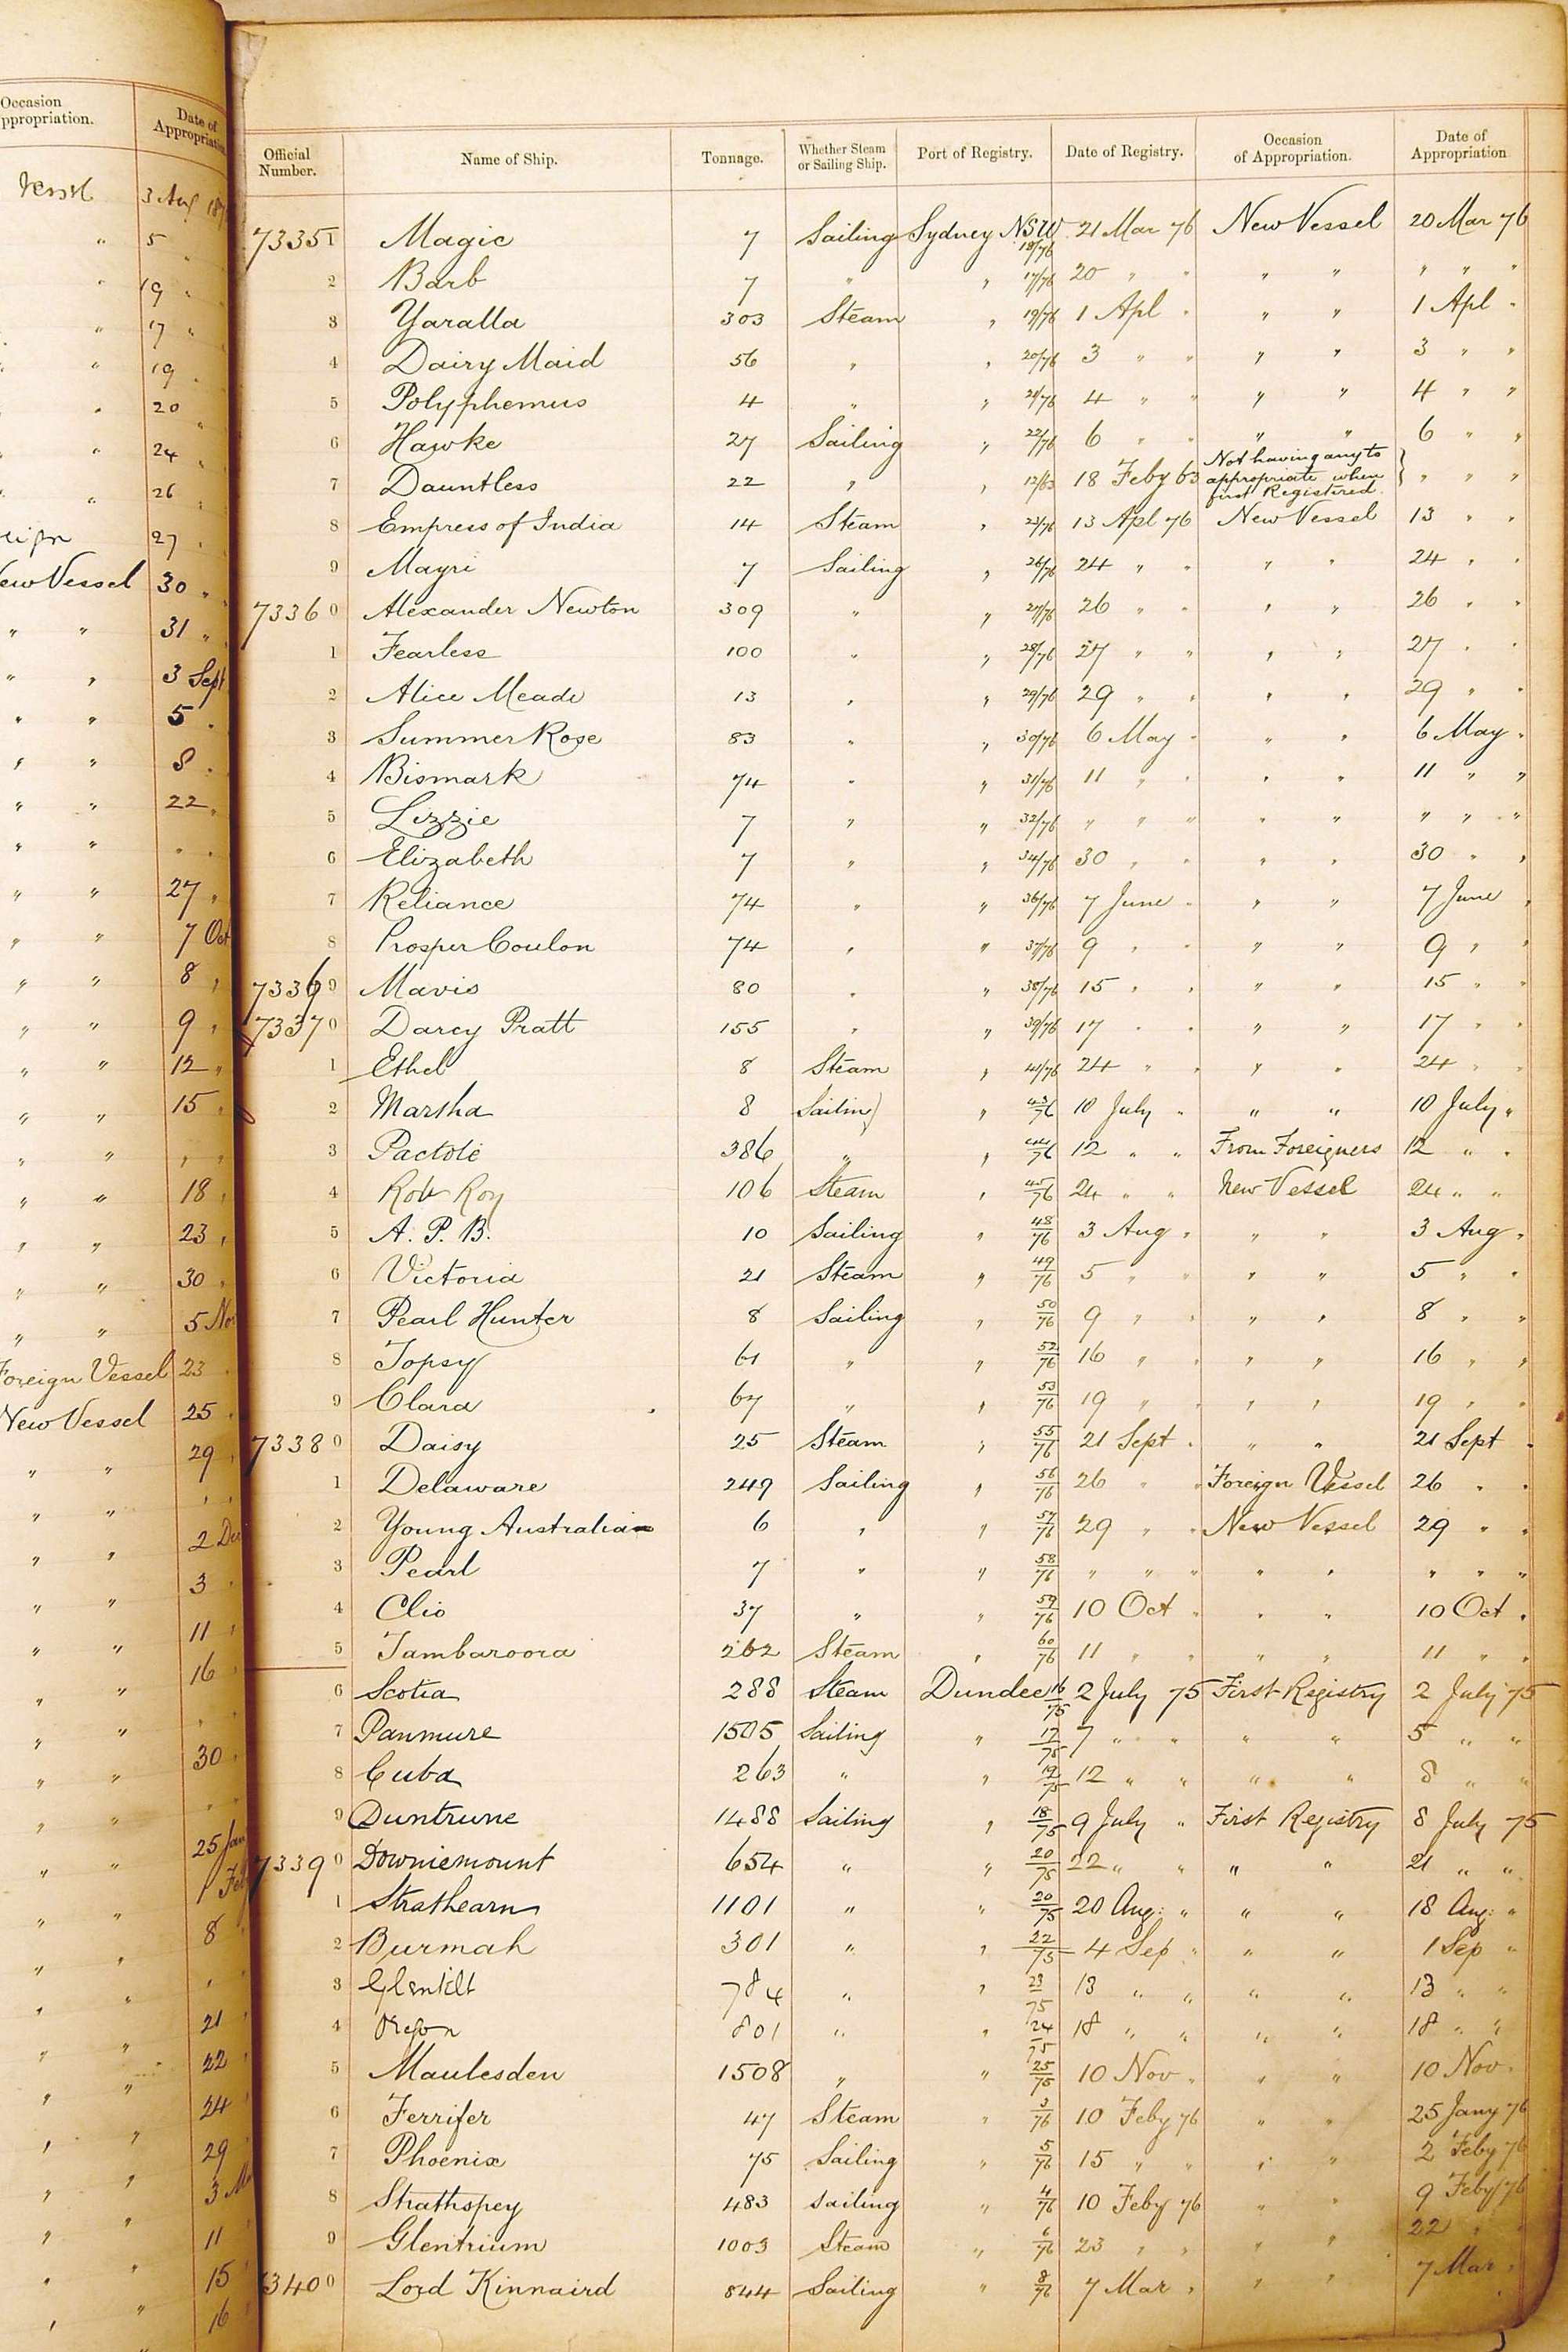 Occasion
ppropriation.
Date of
Appropriation
Vessel 3 Aug 187
" 5 "
" 19 "
" 17 "
" 19 "
" 20 "
" 24 "
" 26 "
eign 27 "
New Vessel 30 "
" " 31 "
" " 3 Sept
" " 5 "
" " 8 "
" " 22 "
" " " "
" " 27 "
" " 7 Oct
" " 8 "
" " 9 "
" " 12 "
" " 15 "
" " " "
" " 18 "
" " 23 "
" " 30 "
" " 5 No
Foreign Vessel 23 "
New Vessel 25 "
" " 29 "
" " " "
" " 2 Dec
" " 3 "
" " 11 "
" " 16 "
" " " "
" " 30 "
" " " "
" " 25 Jan
" " 1 Feb
" " 8 "
" " " "
" " 21 "
" " 22 "
" " 24 "
" " 29 "
" " 3 Ma
" " 11 "
" " 15 "
" " 16 "
Official Number. Name of Ship. Tonnage. Whether Steam or Sailing Ship. Port of Registry. Date of Registry. Occasion of Appropriation. Date of Appropriation
73351 Magic 7 Sailing Sydney NSW 18/76 21 Mar 76 New Vessel 20 Mar 76
2 Barb 7 " " 17/76 20 " " " " " " "
3 Yaralla 303 Steam " 19/76 1 Apl " " " 1 Apl "
4 Dairy Maid 56 " " 20/76 3 " " " " 3 " "
5 Polyphemus 4 " " 21/76 4 " " " " 4 " "
6 Hawke 27 Sailing " 22/76 6 " " " " 6 " "
7 Dauntless 22 " " 12/63 18 Feby 63 Not having any to appropriate when first Registered } " " "
8 Empress of India 14 Steam " 23/76 13 Apl 76 New Vessel 13 " "
9 Mayri 7 Sailing " 26/76 24 " " " " 24 " "
73360 Alexander Newton 309 " " 27/76 26 " " " " 26 " "
1 Fearless 100 " " 28/76 27 " " " " 27 " "
2 Alice Meade 13 " " 29/76 29 " " " " 29 " "
3 Summer Rose 83 " " 30/76 6 May " " " 6 May "
4 Bismark 74 " " 31/76 11 " " " " 11 " "
5 Lizzie 7 " " 32/76 " " " " " " " "
6 Elizabeth 7 " " 34/76 30 " " " " 30 " "
7 Reliance 74 " " 36/76 7 June " " " 7 June "
8 Prosper Coulon 74 " " 37/76 9 " " " " 9 " "
73369 Mavis 80 " " 38/76 15 " " " " 15 " "
73370 Darcy Pratt 155 " " 39/76 17 " " " " 17 " "
1 Ethel 8 Steam " 41/76 24 " " " " 24 " "
2 Marsha 8 Sailing " 43/76 10 July " " " 10 July "
3 Pactole 386 " " 44/76 12 " " From Foreigners 12 " "
4 Rob Roy 106 Steam " 45/76 24 " " New Vessel 24 " "
5 A. P. B. 10 Sailing " 48/76 3 Aug " " " 3 Aug "
6 Victoria 21 Steam " 49/76 5 " " " " 5 " "
7 Pearl Hunter 8 Sailing " 50/76 9 " " " " 8 " "
8 Topsy 61 " " 52/76 16 " " " " 16 " "
9 Clara 67 " " 53/76 19 " " " " 19 " "
73380 Daisy 25 Steam " 55/76 21 Sept " " " 21 Sept "
1 Delaware 249 Sailing " 56/76 26 " " Foreign Vessel 26 " "
2 Young Australian 6 " " 57/76 29 " " New Vessel 29 " "
3 Pearl 7 " " 58/76 " " " " " " " "
4 Clio 37 " " 59/76 10 Oct " " " 10 Oct "
5 Tambaroora 262 Steam " 60/76 11 " " " " 11 " "
6 Scotia 288 Steam Dundee 16/75 2 July 75 First Registry 2 July 75
7 Panmure 1505 Sailing " 17/75 7 " " " " 5 " "
8 Cuba 263 " " 19/75 12 " " " " 8 " "
9 Duntrune 1488 Sailing " 18/75 9 July " First Registry 8 July 75
73390 Downiemount 654 " " 20/75 22 " " " " 21 " "
1 Strathearn 1101 " " 20/75 20 Aug: " " " 18 Aug: "
2 Burmah 301 " " 22/75 4 Sep " " " 1 Sep "
3 Glentilt 784 " " 23/75 13 " " " " 13 " "
4 Oregon 801 " " 24/75 18 " " " " 18 " "
5 Maulesden 1508 " " 25/75 10 Nov " " " 10 Nov "
6 Ferrifer 47 Steam " 3/76 10 Feby 76 " " 25 Jany 76
7 Phoenix 75 Sailing " 5/76 15 " " " " 2 Feby 76
8 Strathspey 483 Sailing " 4/76 10 Feby 76 " " 9 Feby 76
9 Glentrium 1003 Steam " 6/76 23 " " " " 22 " "
73400 Lord Kinnaird 844 Sailing " 8/76 7 Mar " " " 7 Mar "